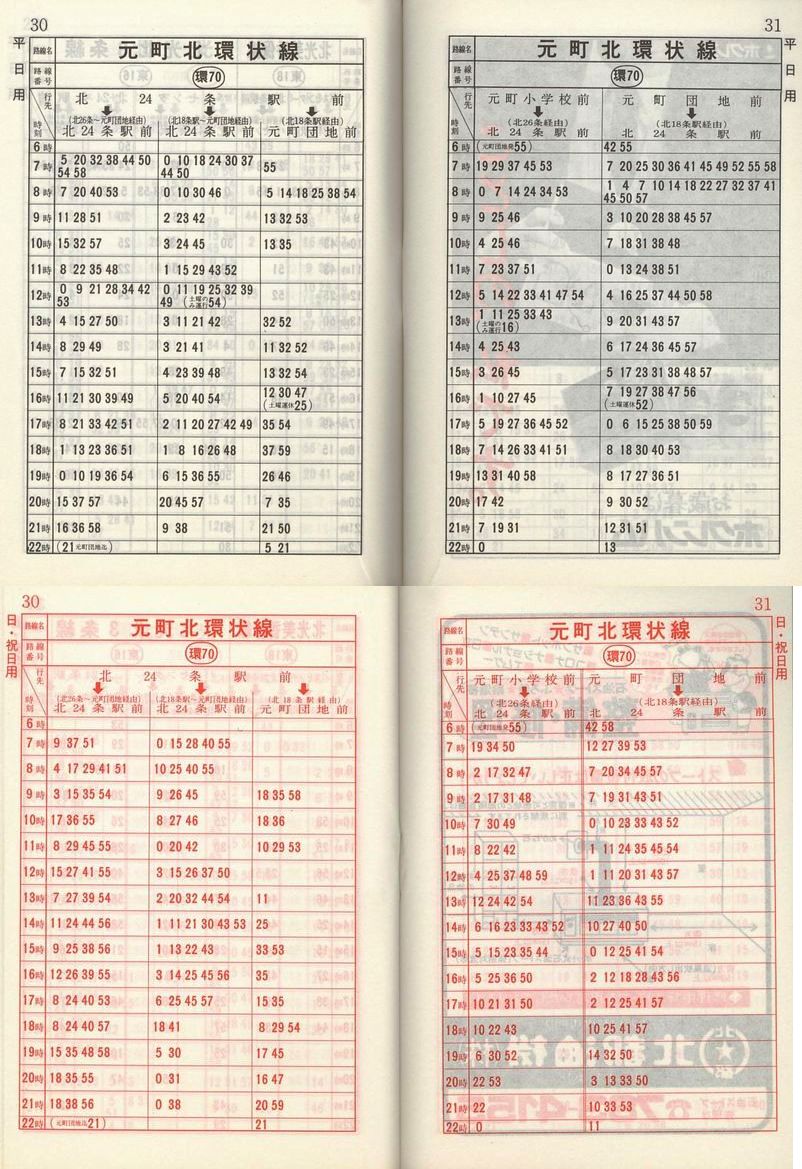 30
平日用
路線名 元町北環状線
路線番号 環70
行先 北24条駅前
(北26条〜元町団地経由) (北18条駅〜元町団地経由) (北18条駅経由)
時刻 北24条駅前 北24条駅前 元町団地前
6時
7時 5 20 32 38 44 50 0 10 18 24 30 37 55
54 58 44 50
8時 7 20 40 53 0 10 30 46 5 14 18 25 38 54
9時 11 28 51 2 23 42 13 32 53
10時 15 32 57 3 24 45 13 35
11時 8 22 35 48 1 15 29 43 52
12時 0 9 21 28 34 42 0 11 19 25 32 39
53 49 (土曜のみ運行54)
13時 4 15 27 50 3 11 21 42 32 52
14時 8 29 49 3 21 41 11 32 52
15時 7 15 32 51 4 23 39 48 13 32 54
16時 11 21 30 39 49 5 20 40 54 12 30 47
(土曜運休25)
17時 8 21 33 42 51 2 11 20 27 42 49 35 54
18時 1 13 23 36 51 1 8 16 26 48 37 59
19時 0 10 19 36 54 6 15 36 55 26 46
20時 15 37 57 20 45 57 7 35
21時 16 36 58 9 38 21 50
22時 (21元町団地迄) 5 21
31
平日用
路線名 元町北環状線
路線番号 環70
行先 元町小学校前 元町団地前
(北26条経由) (北18条駅経由)
時刻 北24条駅前 北24条駅前
6時 (元町団地発55) 42 55
7時 19 29 37 45 53 7 20 25 30 36 41 45 49 52 55 58
8時 0 7 14 24 34 53 1 4 7 10 14 18 22 27 32 37 41
45 50 57
9時 9 25 46 3 10 20 28 38 45 57
10時 4 25 46 7 18 31 38 48
11時 7 23 37 51 0 13 24 38 51
12時 5 14 22 33 41 47 54 4 16 25 37 44 50 58
13時 1 11 25 33 43 9 20 31 43 57
(土曜のみ運行16)
14時 4 25 43 6 17 24 36 45 57
15時 3 26 45 5 17 23 31 38 48 57
16時 1 10 27 45 7 19 27 38 47 56
(土曜運休52)
17時 5 19 27 36 45 52 0 6 15 25 38 50 59
18時 7 14 26 33 41 51 8 18 30 40 53
19時 13 31 40 58 8 17 27 36 51
20時 17 42 9 30 52
21時 7 19 31 12 31 51
22時 0 13
30
日・祝日用
路線名 元町北環状線
路線番号 環70
行先 北24条駅前
(北26条〜元町団地経由) (北18条駅〜元町団地経由) (北18条駅経由)
時刻 北24条駅前 北24条駅前 元町団地前
6時
7時 9 37 51 0 15 28 40 55
8時 4 17 29 41 51 10 25 40 55
9時 3 15 35 54 9 26 45 18 35 58
10時 17 36 55 8 27 46 18 36
11時 8 29 45 55 0 20 42 10 29 53
12時 15 27 41 55 3 15 26 37 50
13時 7 27 39 54 2 20 32 44 54 11
14時 11 24 44 56 1 11 21 30 43 53 25
15時 9 25 38 56 1 13 22 43 33 53
16時 12 26 39 55 3 14 25 45 56 35
17時 8 24 40 53 6 25 45 57 15 35
18時 8 24 40 57 18 41 8 29 54
19時 15 35 48 58 5 30 17 45
20時 18 35 55 0 31 16 47
21時 18 38 56 0 38 20 59
22時 (元町団地迄21) 21
31
日・祝日用
路線名 元町北環状線
路線番号 環70
行先 元町小学校前 元町団地前
(北26条経由) (北18条駅経由)
時刻 北24条駅前 北24条駅前
6時 (元町団地発55) 42 58
7時 19 34 50 12 27 39 53
8時 2 17 32 47 7 20 34 45 57
9時 2 17 31 48 7 19 31 43 51
10時 7 30 49 0 10 23 33 43 52
11時 8 22 42 1 11 24 35 45 54
12時 4 25 37 48 59 1 11 20 31 43 57
13時 12 24 42 54 11 23 36 43 55
14時 6 16 23 33 43 52 10 27 40 50
15時 5 15 23 35 44 0 12 25 41 54
16時 5 25 36 50 2 12 18 28 43 56
17時 10 21 31 50 2 12 25 41 57
18時 10 22 43 10 25 41 57
19時 6 30 52 14 32 50
20時 22 53 3 13 33 50
21時 22 10 33 53
22時 0 11